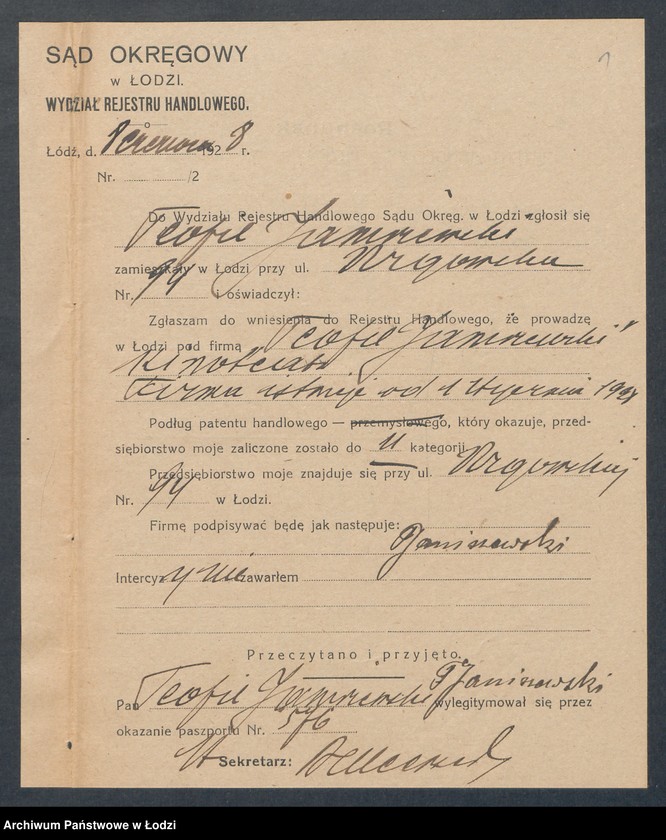 SĄD OKRĘGOWY
w ŁODZI.
WYDZIAŁ REJESTRU HANDLOWEGO.
1
Łódź, d. 8 czerwca 1928 r.
Nr. /2
Do Wydziału Rejestru Handlowego Sądu Okręg. w Łodzi zgłosił się
Teofil Janiszewski
zamieszkały w Łodzi przy ul. Rzgowska
Nr. 94 i oświadczył:
Zgłaszam do wniesienia do Rejestru Handlowego, że prowadzę
w Łodzi pod firmą "Teofil Janiszewski"
Firma istnieje od 1 stycznia
Podług patentu handlowego — przemysłowego, który okazuje, przed-
siębiorstwo moje zaliczone zostało do II kategorji.
Przedsiębiorstwo moje znajduje się przy ul. Rzgowskiej
Nr. 94 w Łodzi.
Firmę podpisywać będę jak następuje:
TJaniszewski
Intercyzy nie zawarłem
Przeczytano i przyjęto.
TJaniszewski
Pan Teofil Janiszewski wylegitymował się przez
okazanie paszportu Nr. 576
Sekretarz:
Archiwum Państwowe w Łodzi